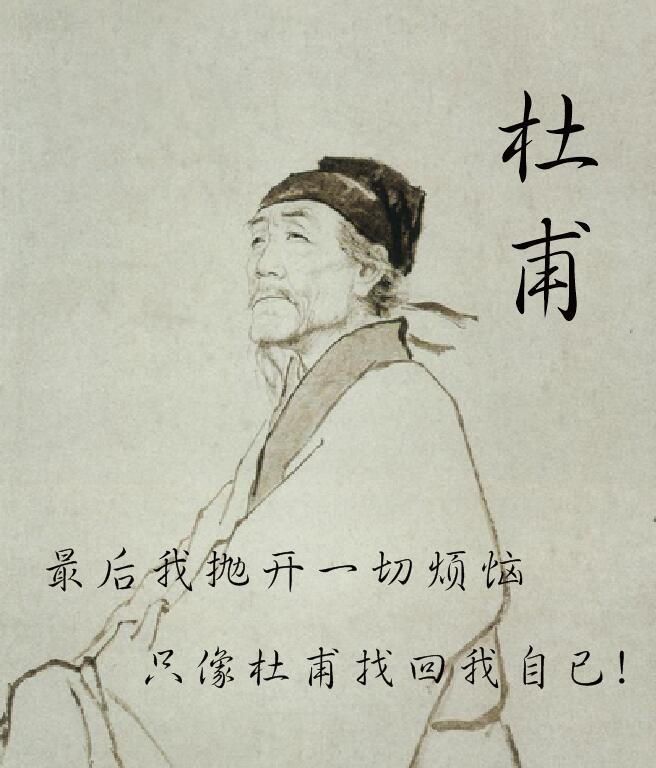 杜甫
最后我抛开一切烦恼
只像杜甫找回我自已!